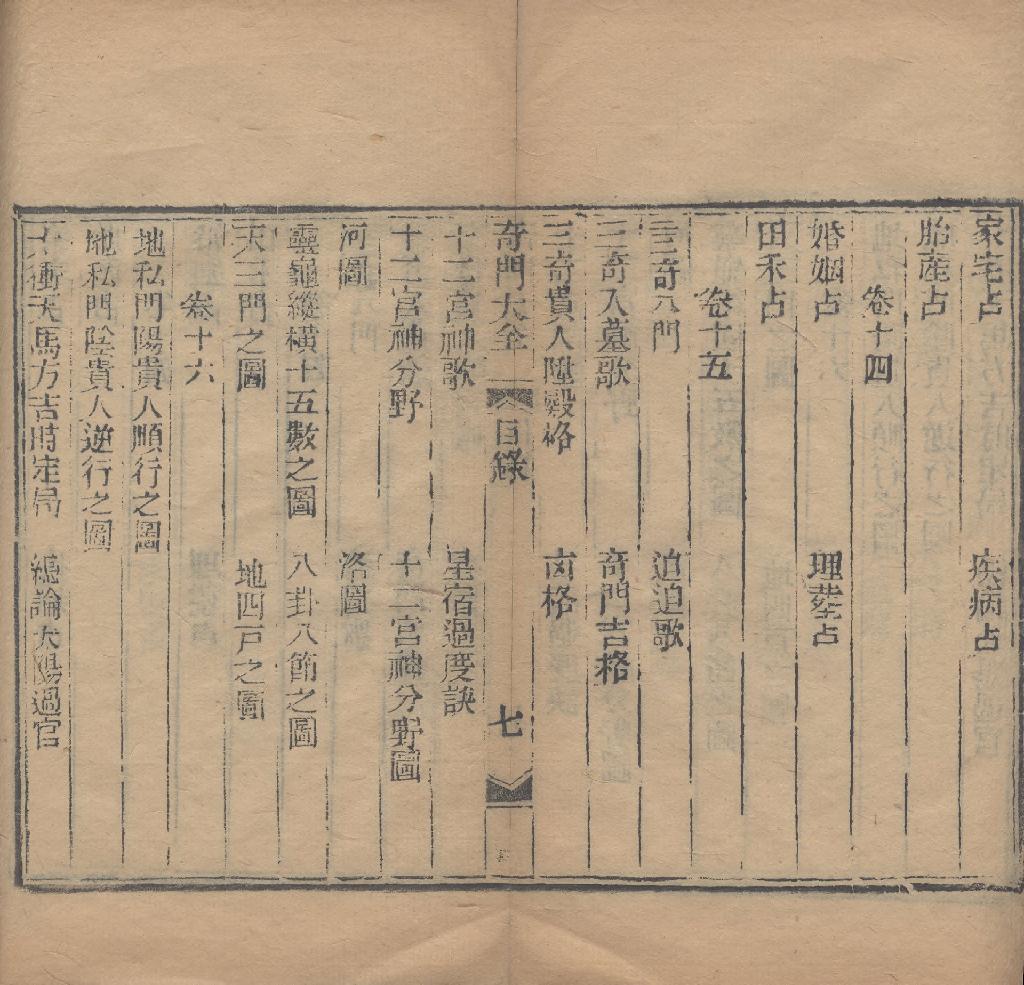 家宅占　疾病占
胎產占
卷十四
婚姻占　理塟占
田禾占
卷十五
三奇八門　迫迫歌
三奇入墓歌　奇門吉格
三奇貴人陞殿格　凶格
奇門大全　目錄　七
十二宮神歌　星宿過度訣
十二宮神分野　十二宮神分野圖
河圖　洛圖
靈龜縱橫十五數之圖　八卦八節之圖
天三門之圖　地四戸之圖
卷十六
地私門陽貴人順行之圖
地私門陰貴人逆行之圖
六衝天馬方吉時定局　總論太陽過宮